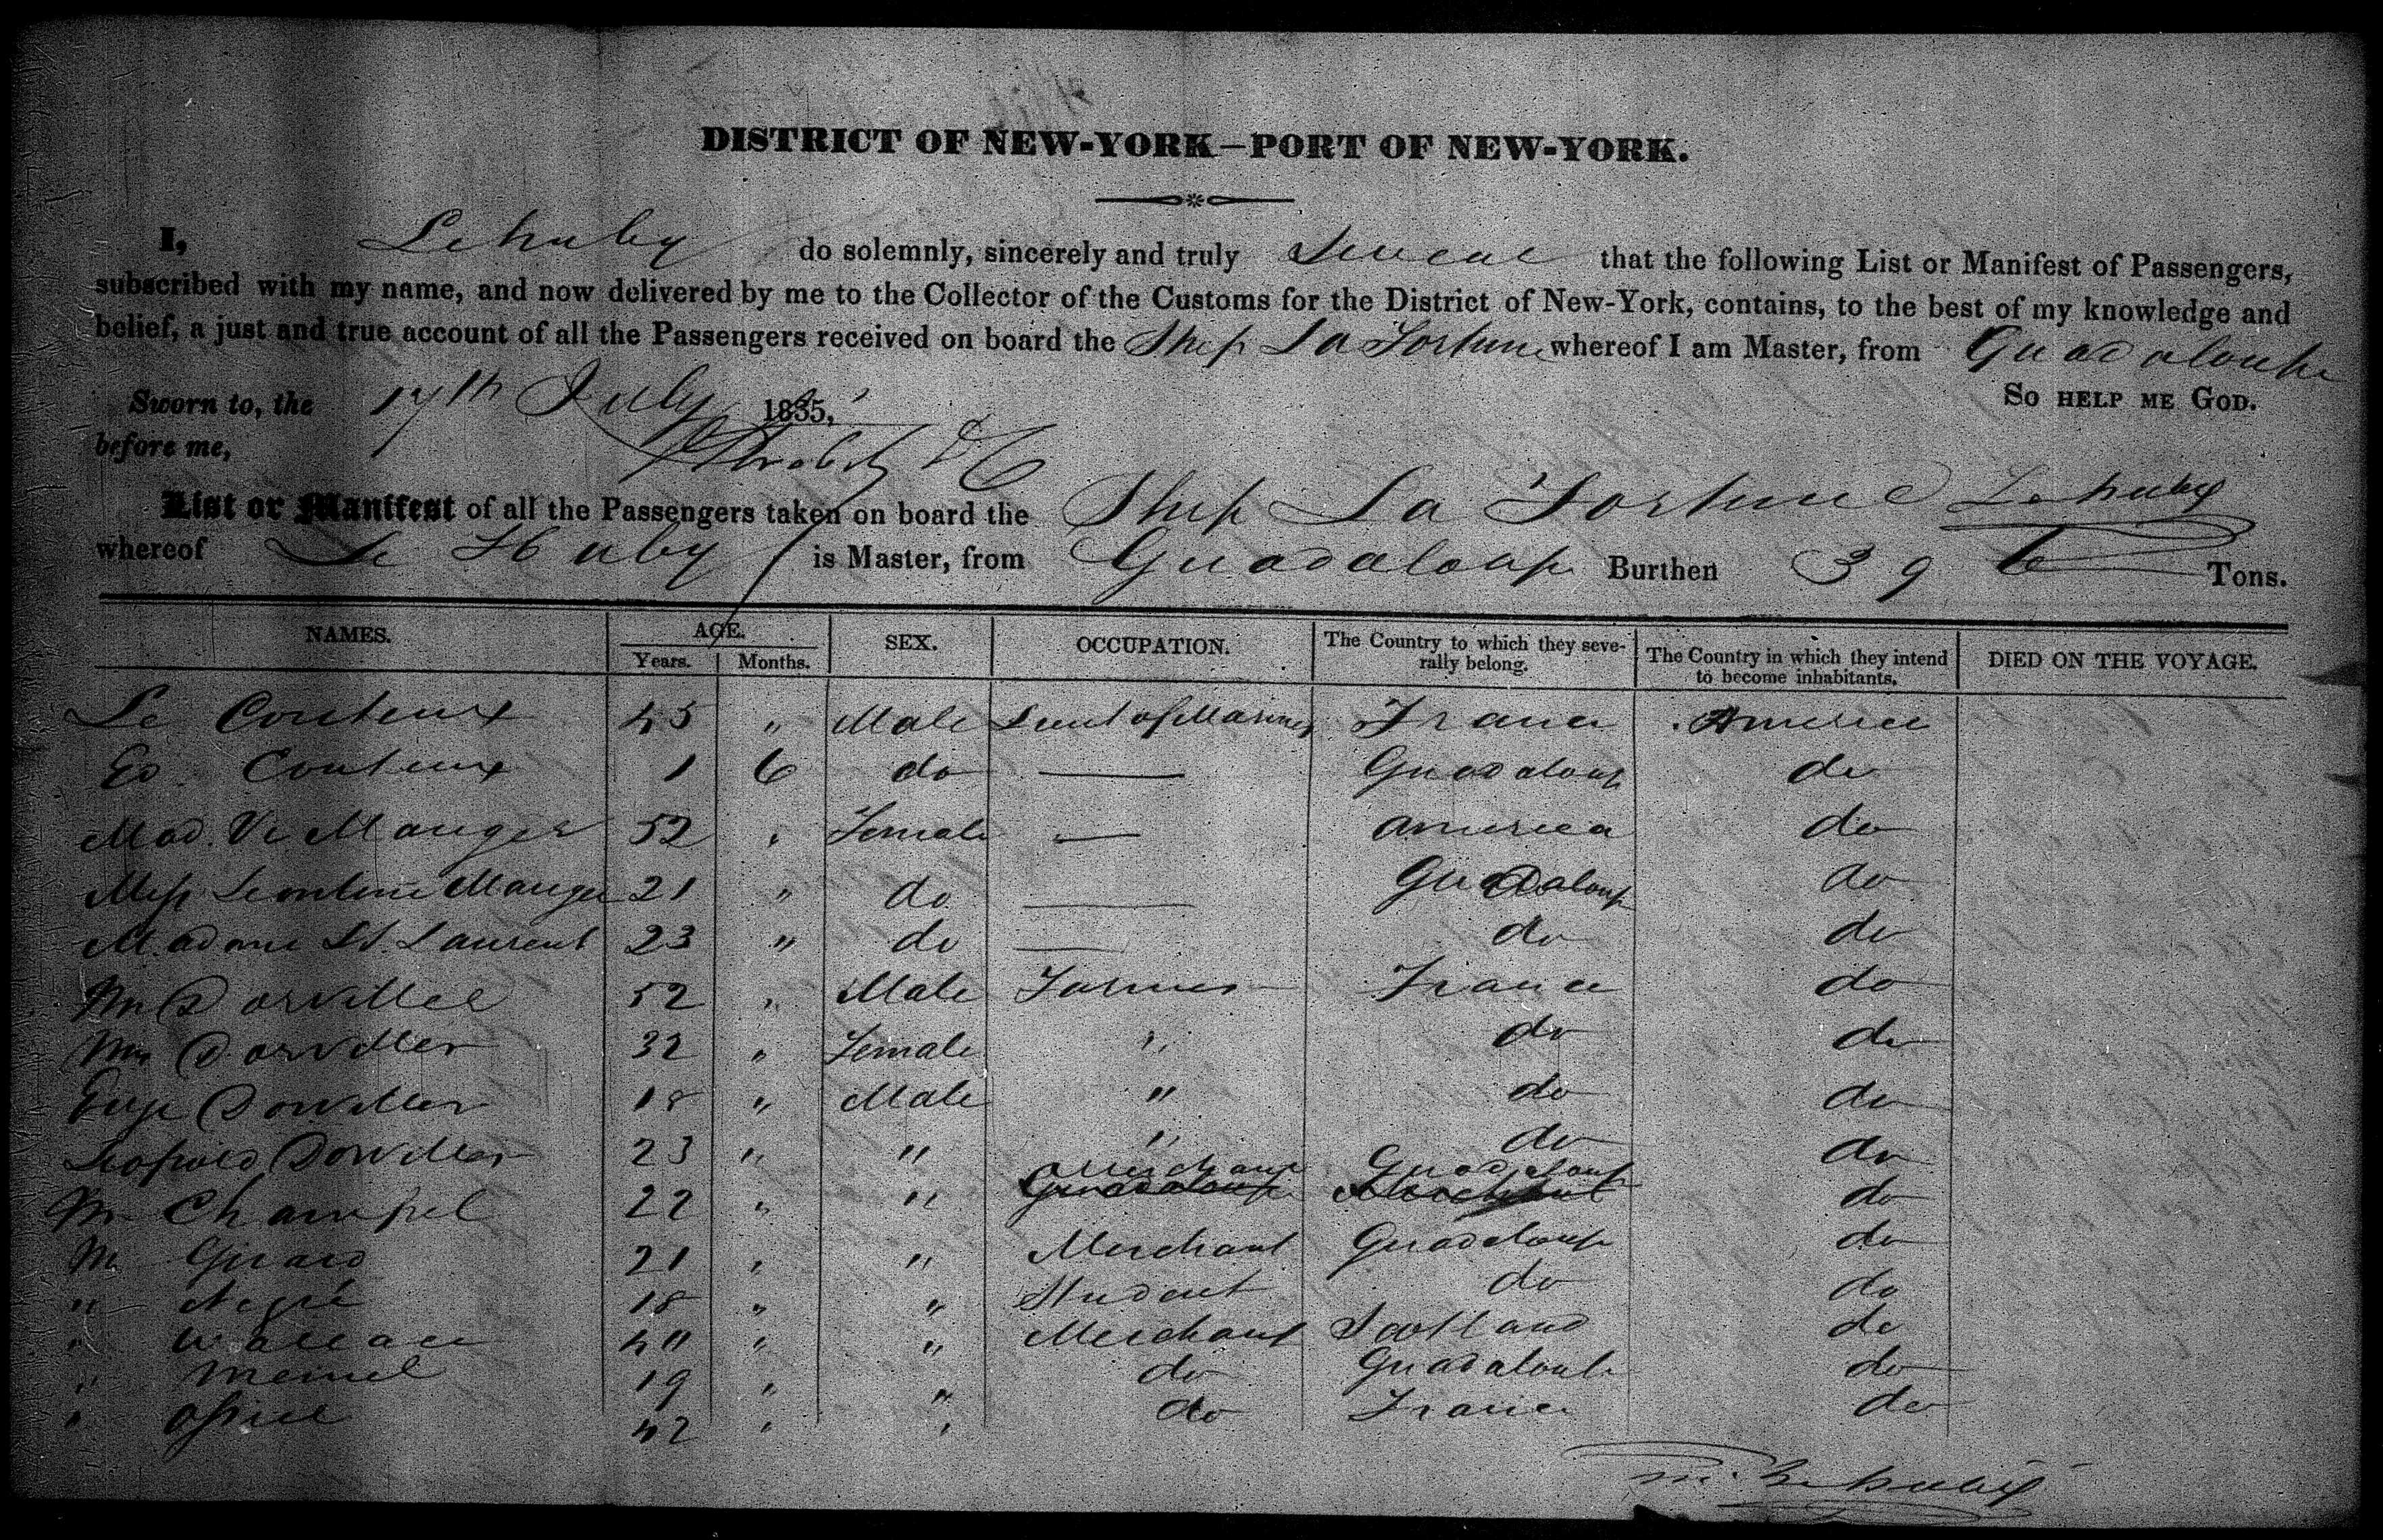 DISTRICT OF NEW-YORK—PORT OF NEW-YORK.
I, Lehuby do solemnly, sincerely and truly Swear that the following List or Manifest of Passengers,
subscribed with my name, and now delivered by me to the Collector of the Customs for the District of New-York, contains, to the best of my knowledge and
belief, a just and true account of all the Passengers received on board the Ship La Fortune whereof I am Master, from Guadaloupe
Sworn to, the 17th July 1835, So HELP ME GOD.
before me,
List or Manifest of all the Passengers taken on board the Ship La Fortune Lehuby
whereof Le Huby is Master, from Guadaloupe Burthen 396 Tons.
NAMES. AGE. SEX. OCCUPATION. The Country to which they seve- The Country in which they intend DIED ON THE VOYAGE.
Years. Months. rally belong. to become inhabitants.
Le Couteux 45 " Male Lieut of Marines France America
Ed. Couteux 1 6 do — Guadaloup do
Mad. Ve Mauger 52 " Female — America do
Miss Leontine Mauger 21 " do — Guadaloup do
Madame St. Laurent 23 " do — do do
Mr Dorviller 52 " Male Farmer France do
Mrs Dorviller 32 " Female " do do
Dorviller 18 " Male " do do
Leopold Dorviller 23 " " " do do
Merchant Guadaloup
Mr Champel 22 " " Guadaloupe Merchant do
M. Girard 21 " " Merchant Guadaloup do
" Negré 18 " " Student do do
" Wallace 40 " " Merchant Scotland do
" 19 " " do Guadaloupe do
" 42 " " do France do
M. Lehuby